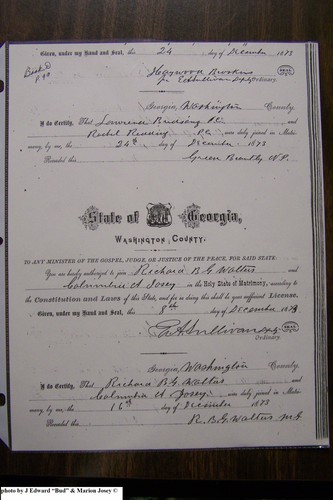 Book D
P. 90
Given, under my Hand and Seal, this 24 day of December 1873
Haywood Brookins
Ordinary.
Georgia, Washington County.
I do Certify, That Lawrence Birdsong P.C. and
Rachel Reading P.C. were duly joined in Matri-
mony, by me, this 24th day of December 1873
Recorded this Green Brantly N.P.
State of Georgia,
WASHINGTON COUNTY.
TO ANY MINISTER OF THE GOSPEL, JUDGE, OR JUSTICE OF THE PEACE, FOR SAID STATE:
You are hereby authorized to join Richard B. G. Walters and
Columbia A Josey in the Holy State of Matrimony, according to
the Constitution and Laws of this State, and for so doing this shall be your sufficient License.
Given, under my Hand and Seal, this 8th day of December 1873
Sullivan
Ordinary.
Georgia, Washington County.
I do Certify, That Richard B. G. Walters and
Columbia A Josey were duly joined in Matri-
mony, by me, this 16th day of December 1873
Recorded this R. B. G. Walters
photo by J Edward "Bud" & Marion Josey ©